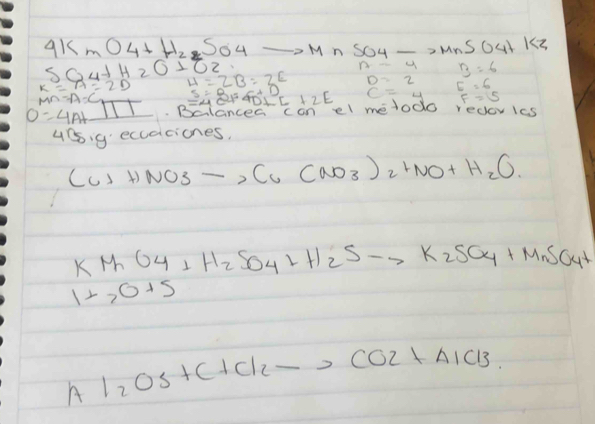 4KmO4+H2SO4 —> MnSO4 —> MnSO4+ K2
SO4+H2O+O2.
A = 4 B = 6
K = A = 2D H = 2B = 2E D = 2 E = 6
Mn=A=C C = 4 F = 5
O=4A+ III . Balancea con el método redox las
sig. ecuaciones.
Cu+HNO3 —> Cu (NO3)2+NO+H2O.
KMnO4+H2SO4+H2S—> K2SO4+MnSO4+
H2O+S
Al2O3+C+Cl2—> CO2+AlCl3.